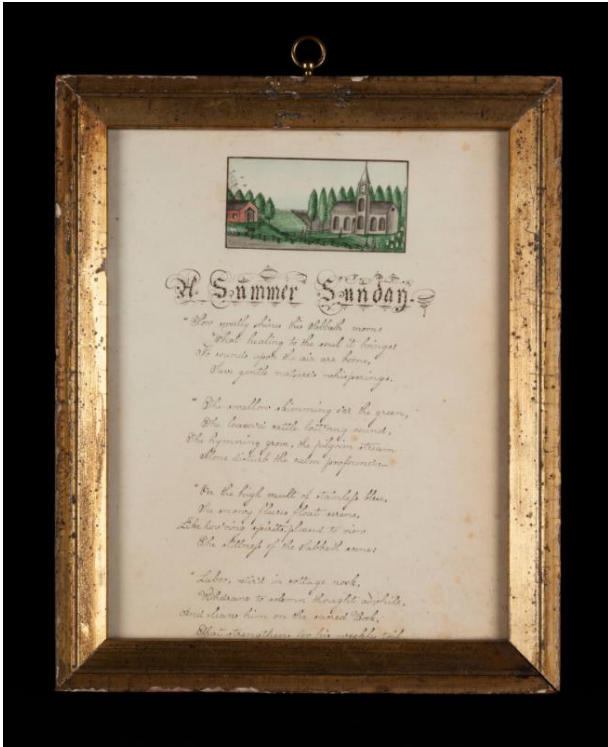 A Summer Sunday.
"How softly shines this Sabbath morn
What healing to the soul it brings
No sounds upon the air are borne,
Save gentle nature's whisperings.
"The swallow skimming o'er the green,
The browsing cattle
The hymning grove, the pilgrim stream
Alone disturb the calm profound
"On the high vault of stainless blue,
The snowy fleeces float serene,
Like hov'ring spirits pleased to view
The stillness of the Sabbath scene:
"Labor, in cottage nook,
Withdraws to solemn thought awhile,
And cleaves him on the sacred Book,
That strengthens for his weekly toil